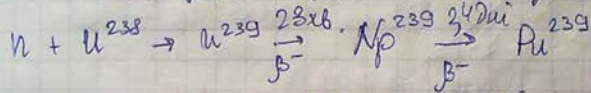 n + U²³⁸ → U²³⁹ 23хв. →β⁻ Np²³⁹ 2,4дні →β⁻ Pu²³⁹